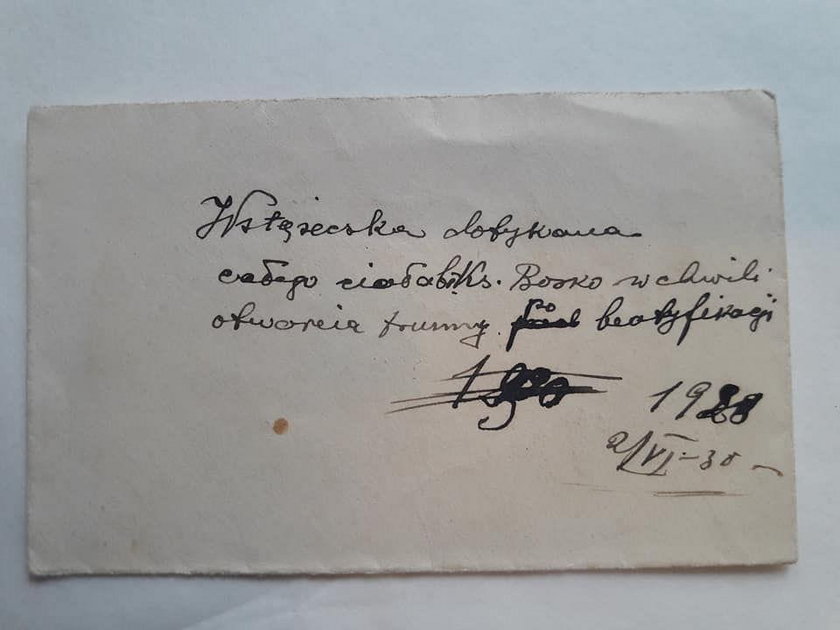 Wstążeczka dotykana
całego ciała bł. Ks. Bosko w chwili
otwarcia trumny. po beatyfikacji
1928
2/VI-30